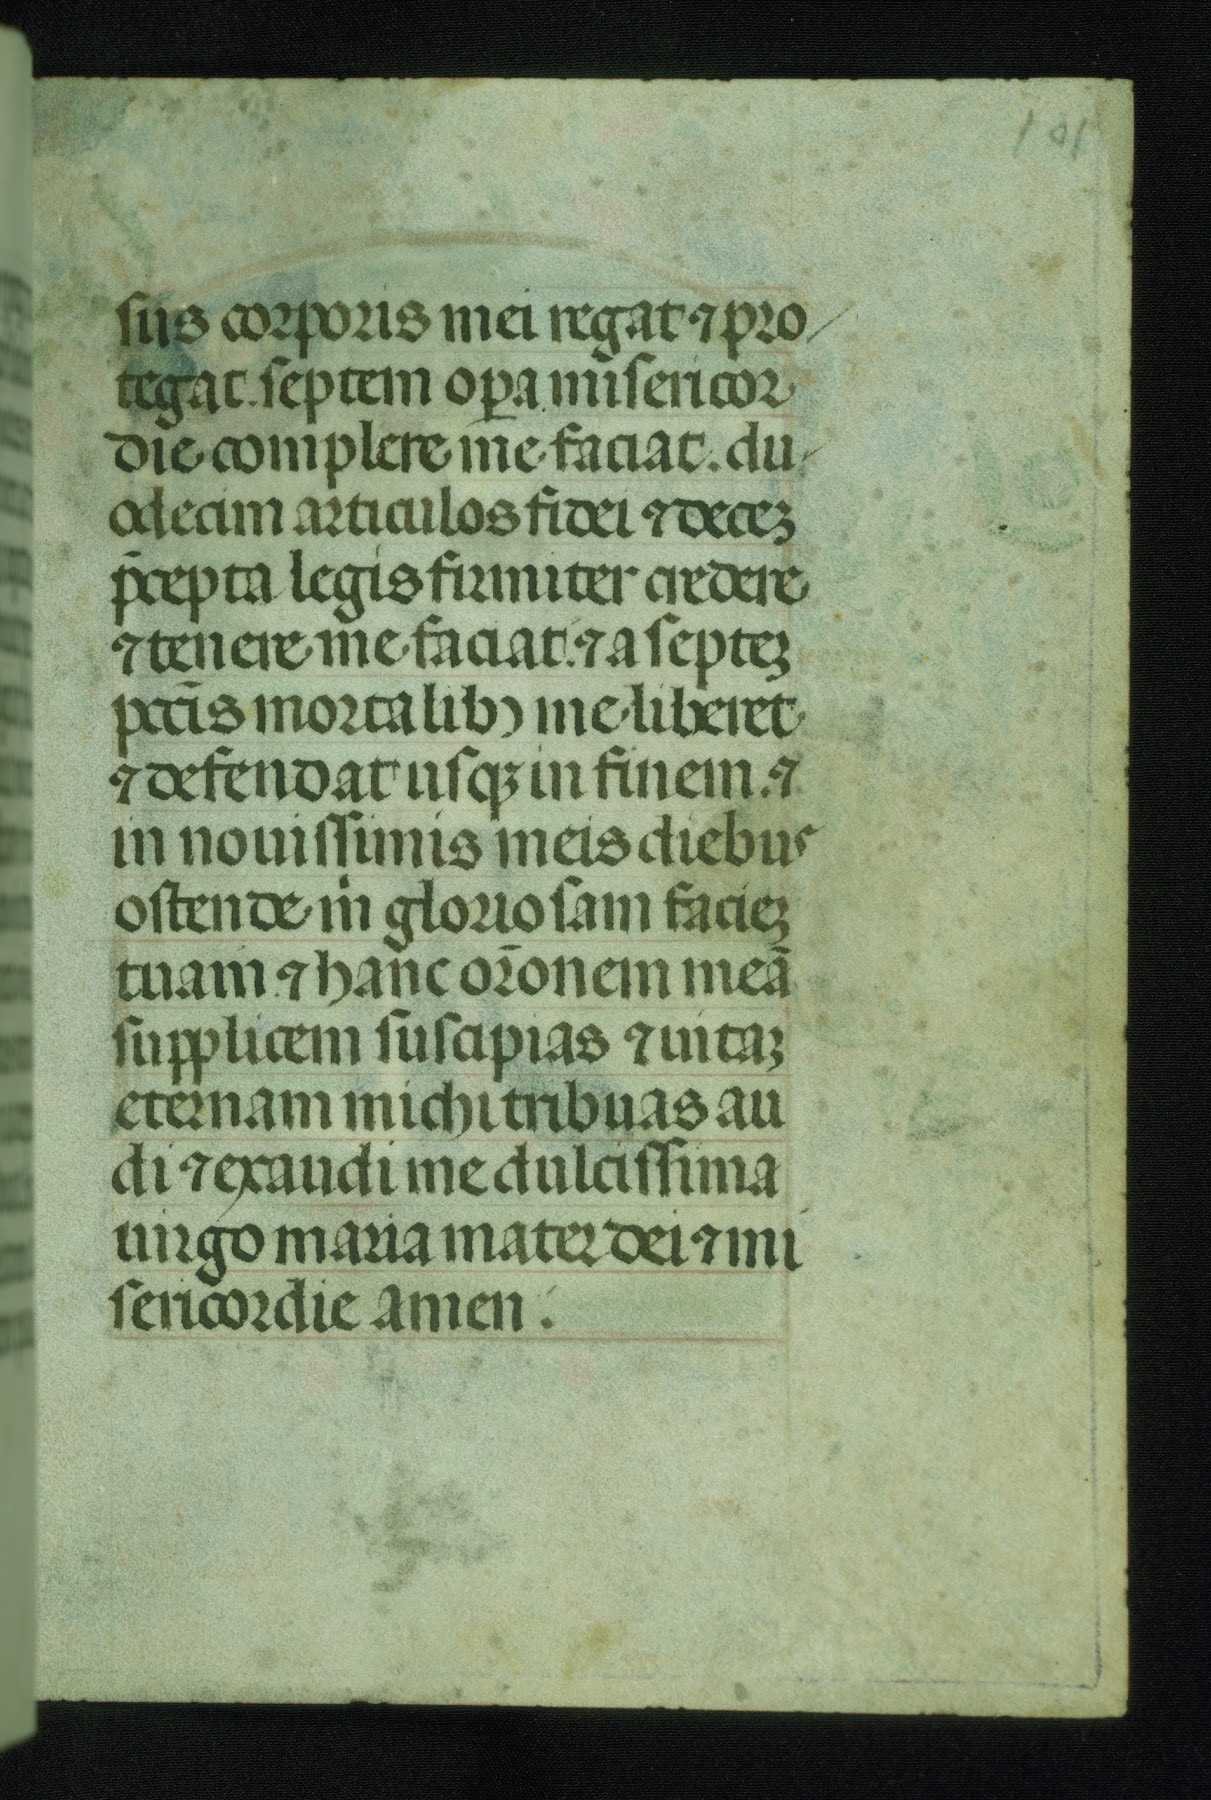 101
sus corporis mei regat ⁊ pro
tegat. septem oꝑa misericor
die complere me faciat. du
odecim articulos fidei ⁊ decez
p̄cepta legis firmiter credere
⁊ tenere me faciat. ⁊ a septez
pctīs mortalibꝫ me liberet
⁊ defendat usqꝫ in finem. ⁊
in nouissimis meis diebus
ostende mi̍ gloriosam faciez
tuam. ⁊ hanc orōnem meā
supplicem suscipias ⁊ uitaz
eternam michi tribuas au
di ⁊ exaudi me dulcissima
uirgo maria mater dei ⁊ mi
sericordie amen.